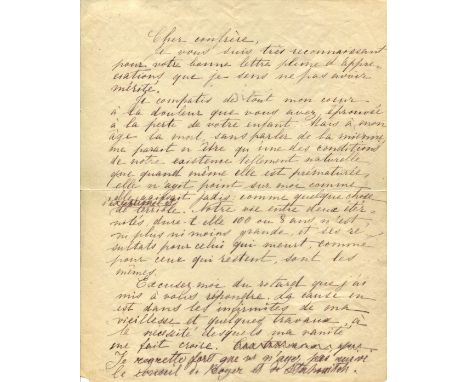 Cher confrère,
Je vous suis très reconnaissant
pour votre bonne lettre pleine d'appré-
ciations que je sens ne pas avoir
mérité.
Je compatis de tout mon cœur
à la douleur que vous avez éprouvée
à la perte de votre enfant. Mais à mon
âge la mort, sans parler de la mienne,
me parait n'être qu'une des conditions
de notre existence tellement naturelle
que quand même elle est prématurée,
elle n'agit point sur moi comme
elle agissait jadis comme quelque chose
de terrible. Notre vie entre deux éter-
nités, dure-t-elle 100 ou 8 ans n'est
ni plus ni moins grande, et ses ré-
sultats pour celui qui meurt, comme
pour ceux qui restent, sont les
mêmes.
Excusez moi du retard que j'ai
mis à vous répondre. La cause en
est dans les infirmités de ma
vieillesse et quelques travaux, à
la nécessité desquels ma vanité
me fait croire.
Je regrette fort que vs n'ayez pas suivi
le conseil de Boyer et de Stakhovitch.